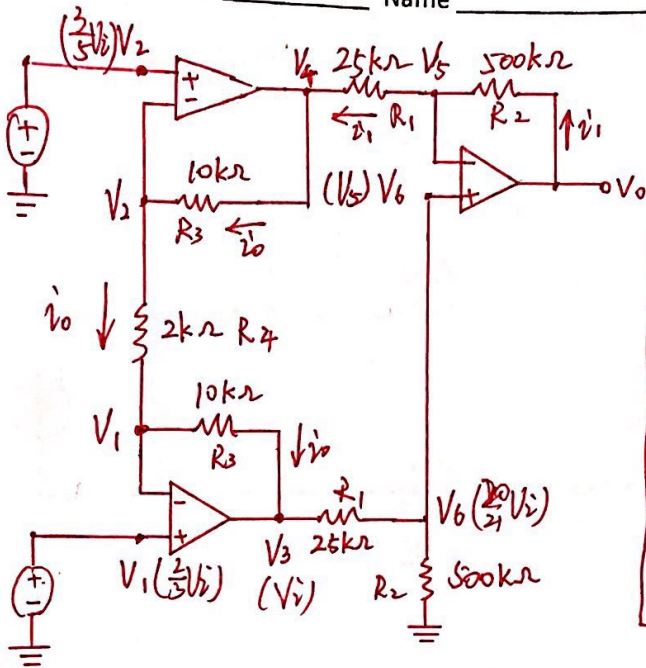 Name
(2/5 Vi) V2
V4 25kΩ V5 500kΩ
i1 R1 R2 i1
+
-
+
-
-
+
Vo
10kΩ
V2
R3 i0
(V5) V6
i0
2kΩ R4
10kΩ
V1
R3
i0
-
+
R1
V6 (20/21 Vi)
+
-
V1 (2/3 Vi)
V3
25kΩ
(Vi)
R2 500kΩ